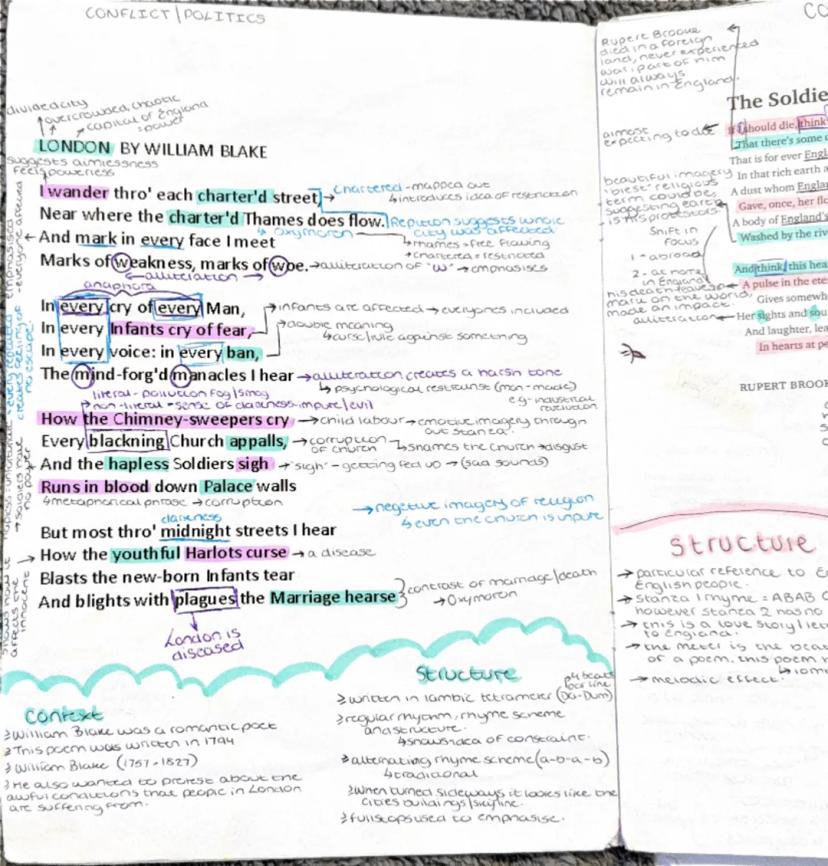 CONFLICT | POLITICS
divided city
overcrowded, chaotic
capital of England
=power
LONDON BY WILLIAM BLAKE
suggests aimlessness
feels powerless
I wander thro' each charter'd street,
Chartered - mapped out
introduces idea of restriction
Near where the charter'd Thames does flow.
Repetition suggests whole
city was affected
oxymoron
And mark in every face I meet
Thames = free flowing
chartered = restricted
Marks of weakness, marks of woe.
alliteration of 'w' → emphasises
alliteration
anaphora
In every cry of every Man,
infants are affected → everyone included
In every Infants cry of fear,
double meaning
curse/live against something
In every voice: in every ban,
The mind-forg'd manacles I hear
alliteration creates a harsh tone
psychological restraint (man-made)
e.g. industrial
revolution
literal - pollution fog/smog
non-literal - sense of darkness - impure/evil
How the Chimney-sweepers cry
child labour → emotive imagery through
out stanza.
Every blackning Church appalls,
corruption
of church
shames the church → disgust
And the hapless Soldiers sigh
'sigh' - getting fed up → (sad sounds)
Runs in blood down Palace walls
metaphorical phrase → corruption
negetive imagery of religion
even the church is impure
darkness
But most thro' midnight streets I hear
How the youthful Harlots curse
→ a disease
Blasts the new-born Infants tear
And blights with plagues the Marriage hearse
contrast of marriage/death
→ Oxymoron
London is
diseased
Context
William Blake was a romantic poet
This poem was written in 1794
William Blake (1757-1827)
He also wanted to protest about the
awful conditions that people in London
are suffering from.
Structure
4 beats
per line
written in Iambic tetrameter (Da-Dum)
regular rhythm, rhyme scheme
and structure.
shows idea of constraint.
alternating rhyme scheme (a-b-a-b)
traditional
When turned sideways it looks like the
cities buildings/skyline.
fullstops used to emphasise.
CO
Rupert Brooke
died in a foreign
land, never experienced
war, part of him
will always
remain in England.
The Soldie
almost
expecting to die
If I should die, think
That there's some c
That is for ever Engl
beautiful imagery
'blest' religious
term could be
suggesting earth
is his
In that rich earth a
A dust whom Englan
Gave, once, her flo
A body of England's
Washed by the rive
Shift in
focus
1 - abroad
2 - at home
in England
And think, this hea
his death leaves a
mark on the world,
made an impact.
A pulse in the eter
Gives somewh
alliteration
Her sights and sou
And laughter, lea
In hearts at pe
RUPERT BROOK
Structure
→ particular reference to E
English people.
→ Stanza 1 rhyme = ABAB C
however stanza 2 has no
→ this is a love story/lett
to England.
→ the meter is the beat
of a poem. this poem
→ melodic effect.